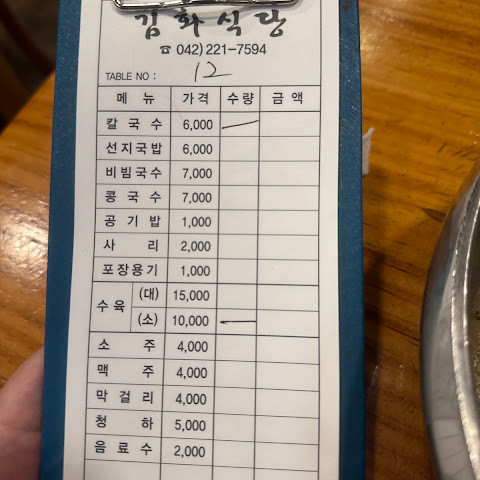 김화식당
☎ 042) 221-7594
TABLE NO : 12
메 뉴 가 격 수 량 금 액
칼 국 수 6,000 —
선지국밥 6,000
비빔국수 7,000
콩 국 수 7,000
공 기 밥 1,000
사 리 2,000
포장용기 1,000
수 육 (대) 15,000
(소) 10,000 —
소 주 4,000
맥 주 4,000
막 걸 리 4,000
청 하 5,000
음 료 수 2,000